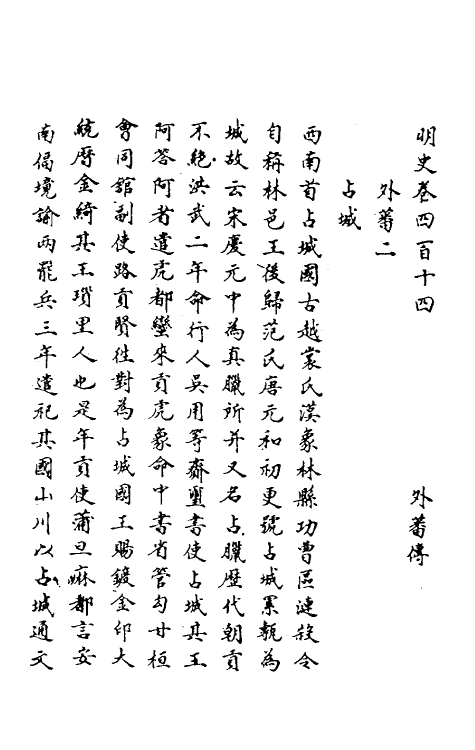 明史卷四百十四　外蕃傳
外蕃二
占城
西南首占城國古越裳氏漢象林縣功曹區連殺令
自稱林邑王後歸范氏唐元和初更號占城累執為
城故云宋慶元中為真臘所并又名占臘歷代朝貢
不絶洪武二年命行人吳用等齎璽書使占城其王
阿答阿者遣虎都蠻來貢虎象命中書省管勾甘桓
會同舘副使路貢賢徃對為占城國王賜鍍金印大
統厯金綺其王瑣里人也是年貢使蒲旦麻都言安
南侵境諭兩罷兵三年遣祀其國山川以占城通文